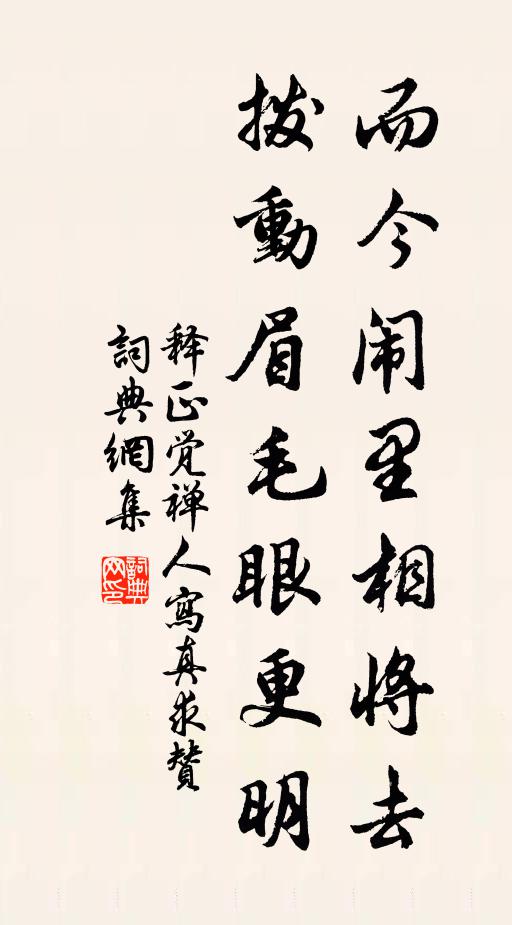 而今闹里相将去
拨動眉毛眼更明
释正觉禅人寫真求賛
詞典網集
詞典网印